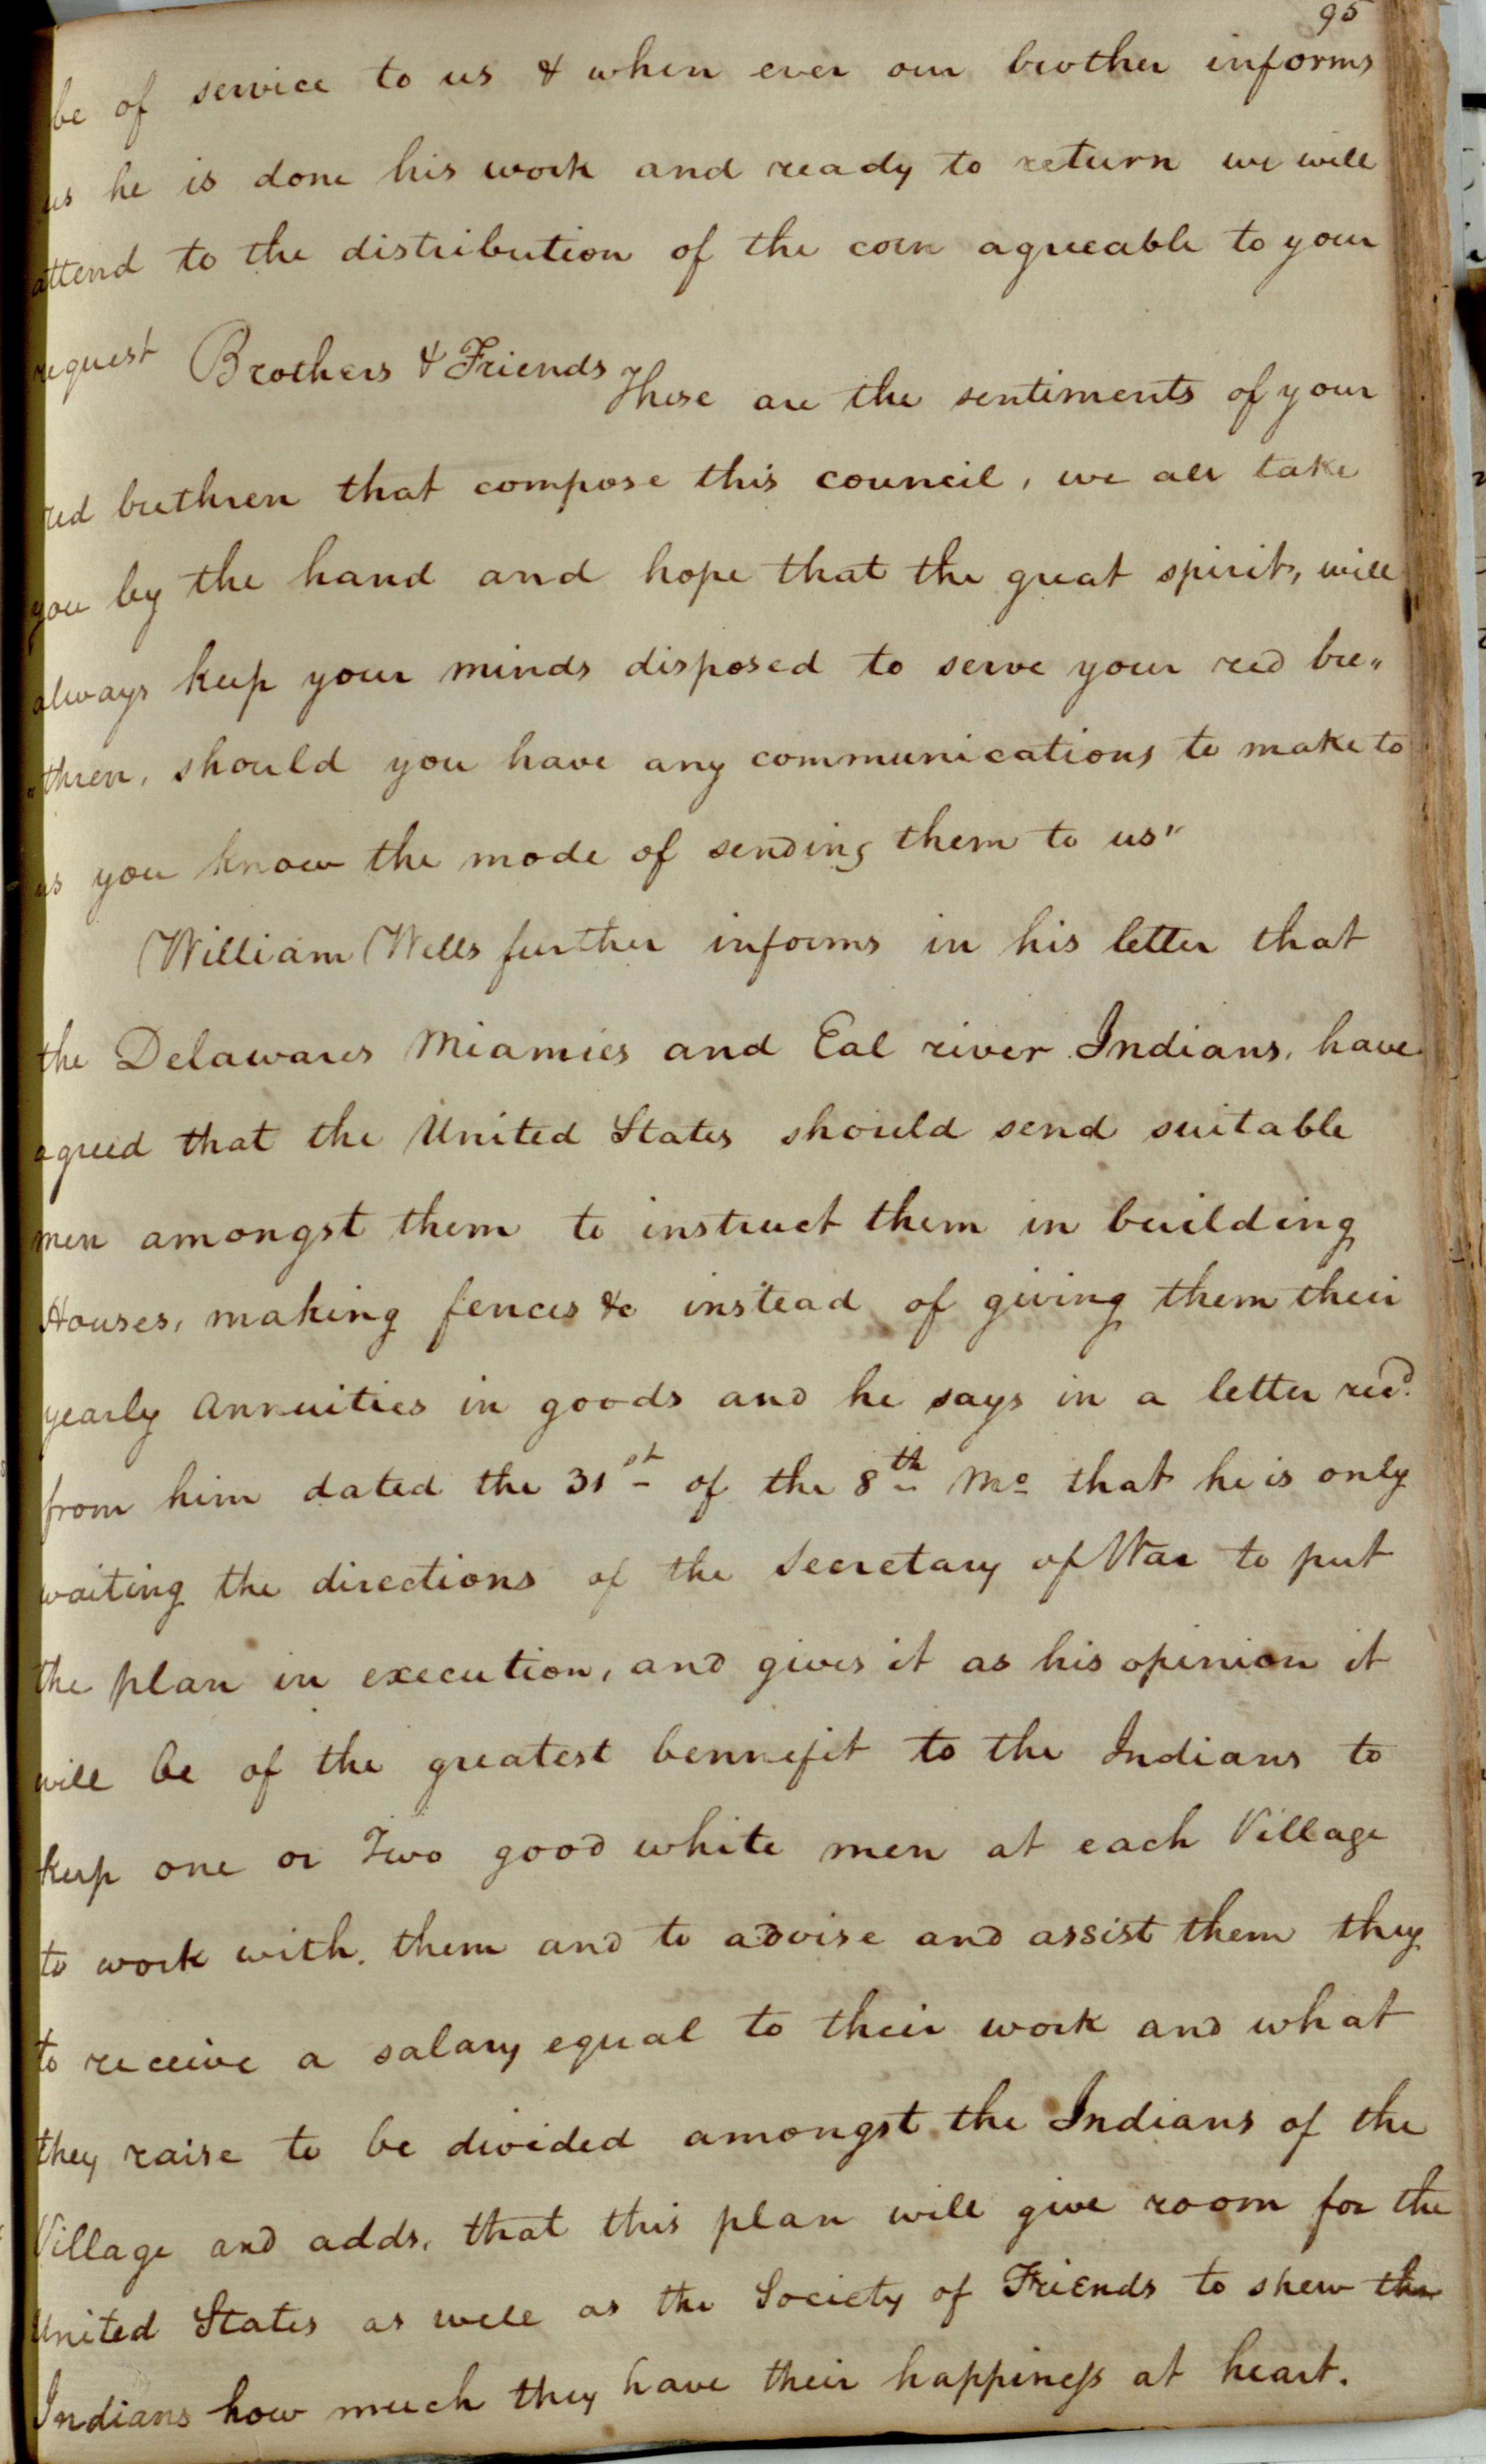 95
be of service to us & when ever our brother informs
us he is done his work and ready to return we will
attend to the distribution of the corn agreeable to your
request Brothers & Friends These are the sentiments of your
red brethren that compose this council, we all take
you by the hand and hope that the great spirit, will
always keep your minds disposed to serve your red bre„
„thren, should you have any communications to make to
us you know the mode of sending them to us"
William Wells further informs in his letter that
the Delawares Miamies and Eal river Indians, have
agreed that the United States should send suitable
men amongst them to instruct them in building
Houses, making fences &c instead of giving them their
yearly annuities in goods and he says in a letter recd.
from him dated the 31st of the 8th Mo that he is only
waiting the directions of the Secretary of War to put
the plan in execution, and gives it as his opinion it
will be of the greatest bennefit to the Indians to
keep one or Two good white men at each Village
to work with, them and to advise and assist them they
to receive a salary equal to their work and what
they raise to be divided amongst the Indians of the
Village and adds, that this plan will give room for the
United States as well as the Society of Friends to shew the
Indians how much they have their happiness at heart.